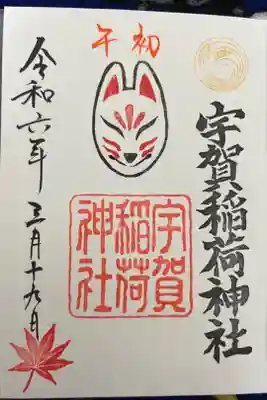 宇賀稲荷神社
初午
宇賀
稲荷
神社
令和六年 三月十九日